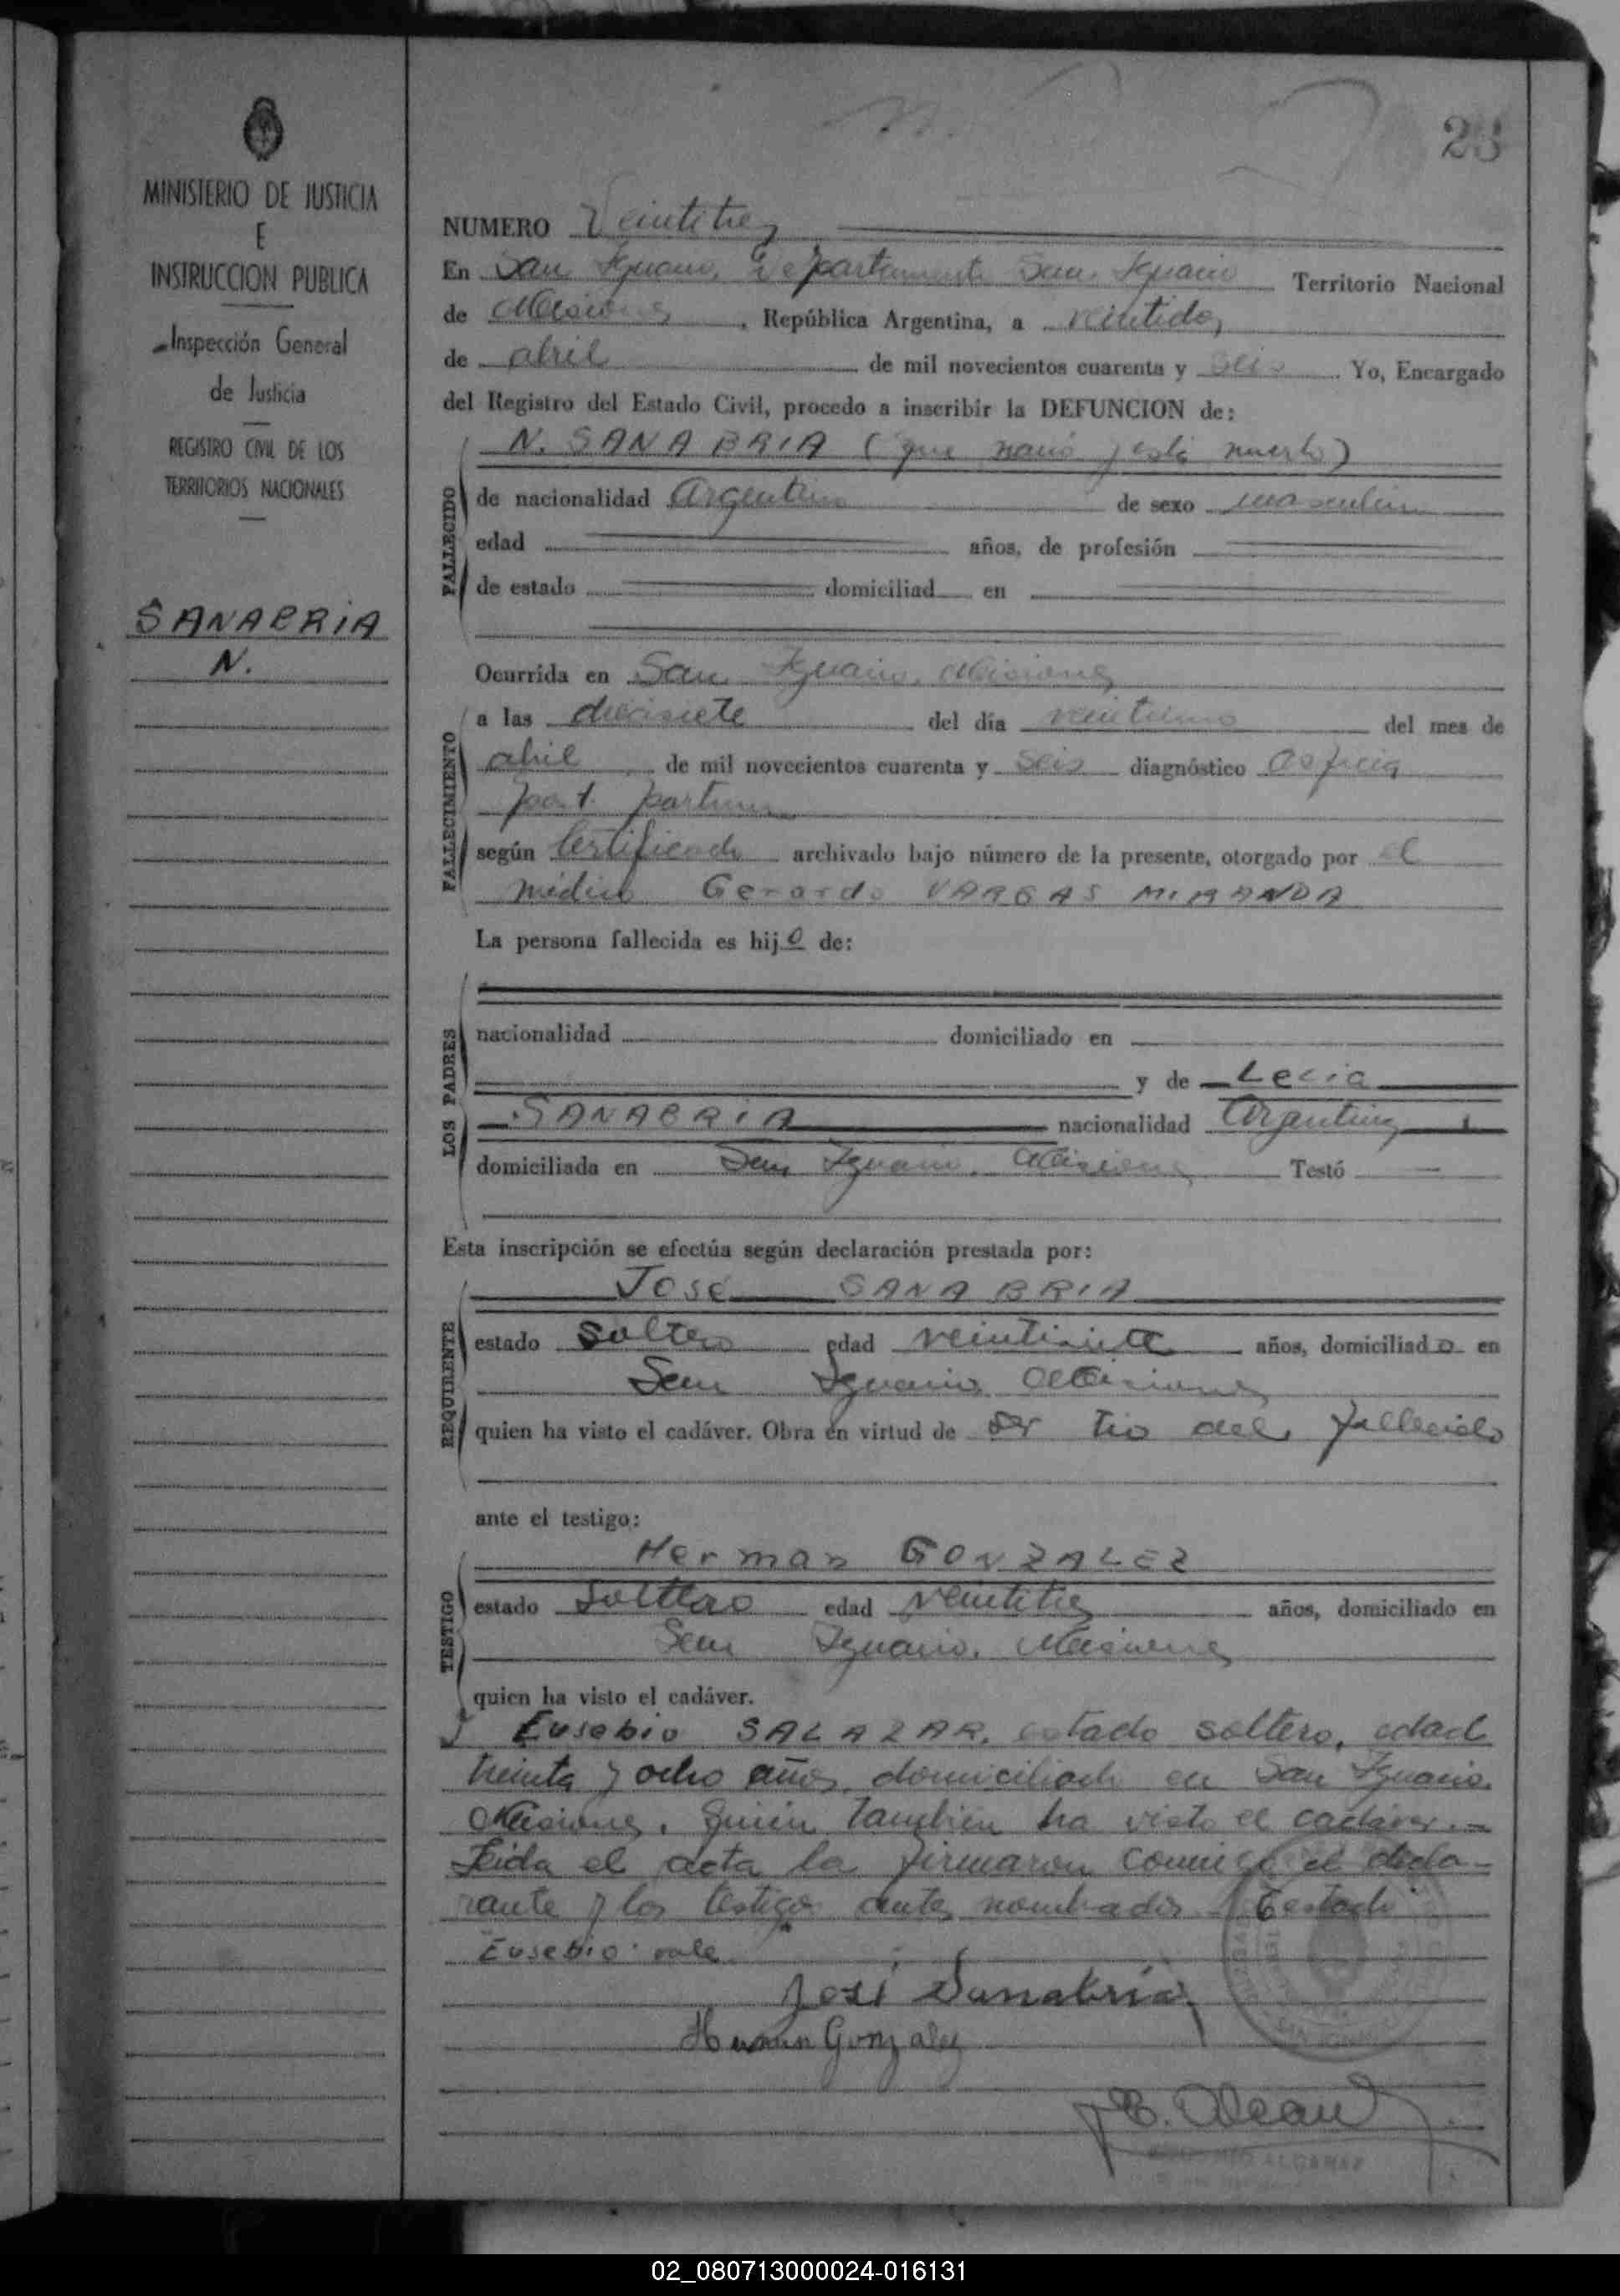 23
MINISTERIO DE JUSTICIA
E
INSTRUCCION PUBLICA
Inspección General
de Justicia
REGISTRO CIVIL DE LOS
TERRITORIOS NACIONALES
SANABRIA
N.
NUMERO Veintitres
En San Ignacio, Departamento San Ignacio Territorio Nacional
de Misiones, República Argentina, a veintidos
de abril de mil novecientos cuarenta y seis. Yo, Encargado
del Registro del Estado Civil, procedo a inscribir la DEFUNCION de:
FALLECIDO
N. SANABRIA (que nació y está muerto)
de nacionalidad Argentino de sexo masculino
edad años, de profesión
de estado domiciliad en
FALLECIMIENTO
Ocurrida en San Ignacio, Misiones
a las diecisiete del día veintiuno del mes de
abril de mil novecientos cuarenta y seis diagnóstico asficia
post partum
según Certificado archivado bajo número de la presente, otorgado por el
médico Gerardo VARGAS MIRANDA
La persona fallecida es hijo de:
LOS PADRES
nacionalidad domiciliado en
y de Lecia
SANABRIA nacionalidad Argentina
domiciliada en San Ignacio, Misiones Testó
Esta inscripción se efectúa según declaración prestada por:
REQUIRENTE
José SANABRIA
estado Soltero edad veintisiete años, domiciliado en
San Ignacio Misiones
quien ha visto el cadáver. Obra en virtud de ser tio del fallecido
ante el testigo:
TESTIGO
Herman GONZALEZ
estado Soltero edad veintitres años, domiciliado en
San Ignacio, Misiones
quien ha visto el cadáver.
y Eusebio SALAZAR, estado soltero, edad
treinta y ocho años, domiciliado en San Ignacio
Misiones, quien tambien ha visto el cadaver.-
Leida el acta la firmaron conmigo el decla-
rante y los testigos antes nombrados Testado
Eusebio: vale
José Sanabria
Herman Gonzalez
ALCARAZ
02_080713000024-016131